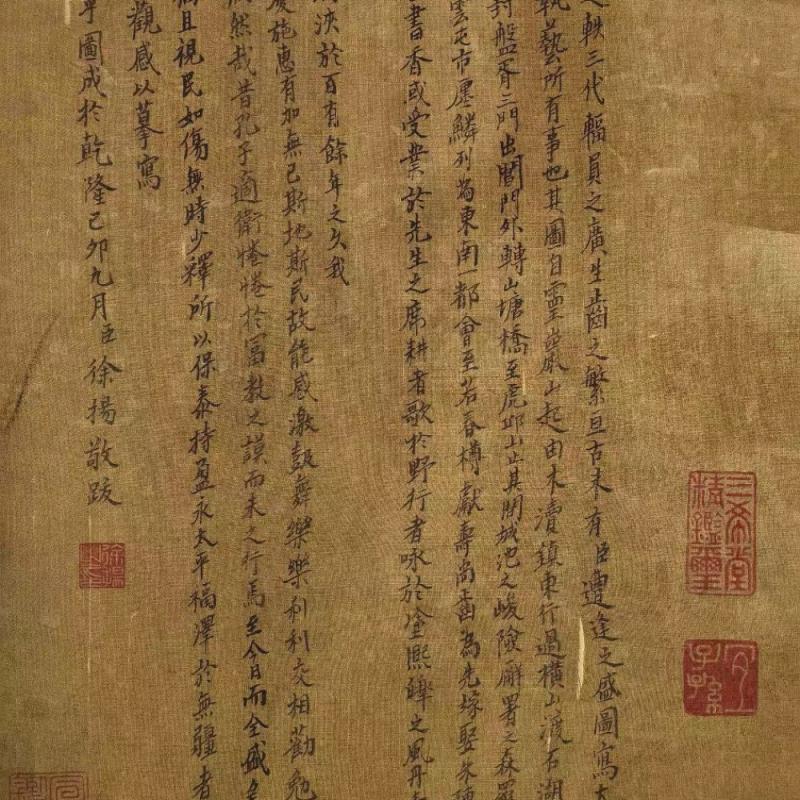 之軼三代輻員之廣生齒之繁亘古未有臣遭逢之盛圖寫太
執藝所有事也其圖自靈巖山起由木瀆鎮東行過橫山渡石湖
封盤胥三門出閶門外轉山塘橋至虎邱山止其間城池之峻險廨署之森羅
雲屯市廛鱗列為東南一都會至若春樽獻壽尚齒為先嫁娶朱陳
書香或受業於先生之席耕者歌於野行者咏於塗熙皞之風丹
浹於百有餘年之久我
慶施惠有加無已斯地斯民故能感激鼓舞樂樂利利交相勸勉
然哉昔孔子適衛惓惓於富教之謨而未之行焉至今日而全盛
且視民如傷無時少釋所以保泰持盈永太平福澤於無疆者
觀感以摹寫
圖成於乾隆己卯九月臣徐揚敬跋
三希堂
精鑑璽
宜
子孫